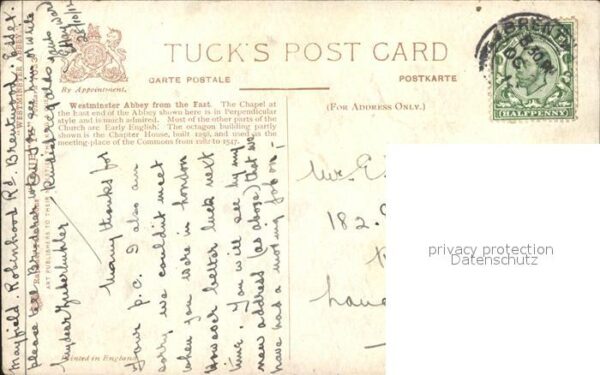 TUCK'S POST CARD
CARTE POSTALE
POSTKARTE
By Appointment.
(FOR ADDRESS ONLY.)
Westminster Abbey from the East. The Chapel at
the East end of the Abbey shown here is in Perpendicular
style and is much admired. Most of the other parts of the
Church are Early English. The octagon building partly
shown is the Chapter House, built 1250, and used as the
meeting-place of the Commons from 1282 to 1547.
Printed in England
WESTMINSTER ABBEY
ART PUBLISHERS TO THEIR
Mayfield. Robinhood Rd. Brentwood. Essex.
please tell when you see him I while
Kindest regards
28/10/12
My dear
Many thanks for
your p.c. I also am
sorry we couldn't meet
when you were in London
However better luck next
time. You will see by my
new address (as above) that we
have had a moving job on;
Mr. E
182.
BREN
HALFPENNY
privacy protection
Datenschutz